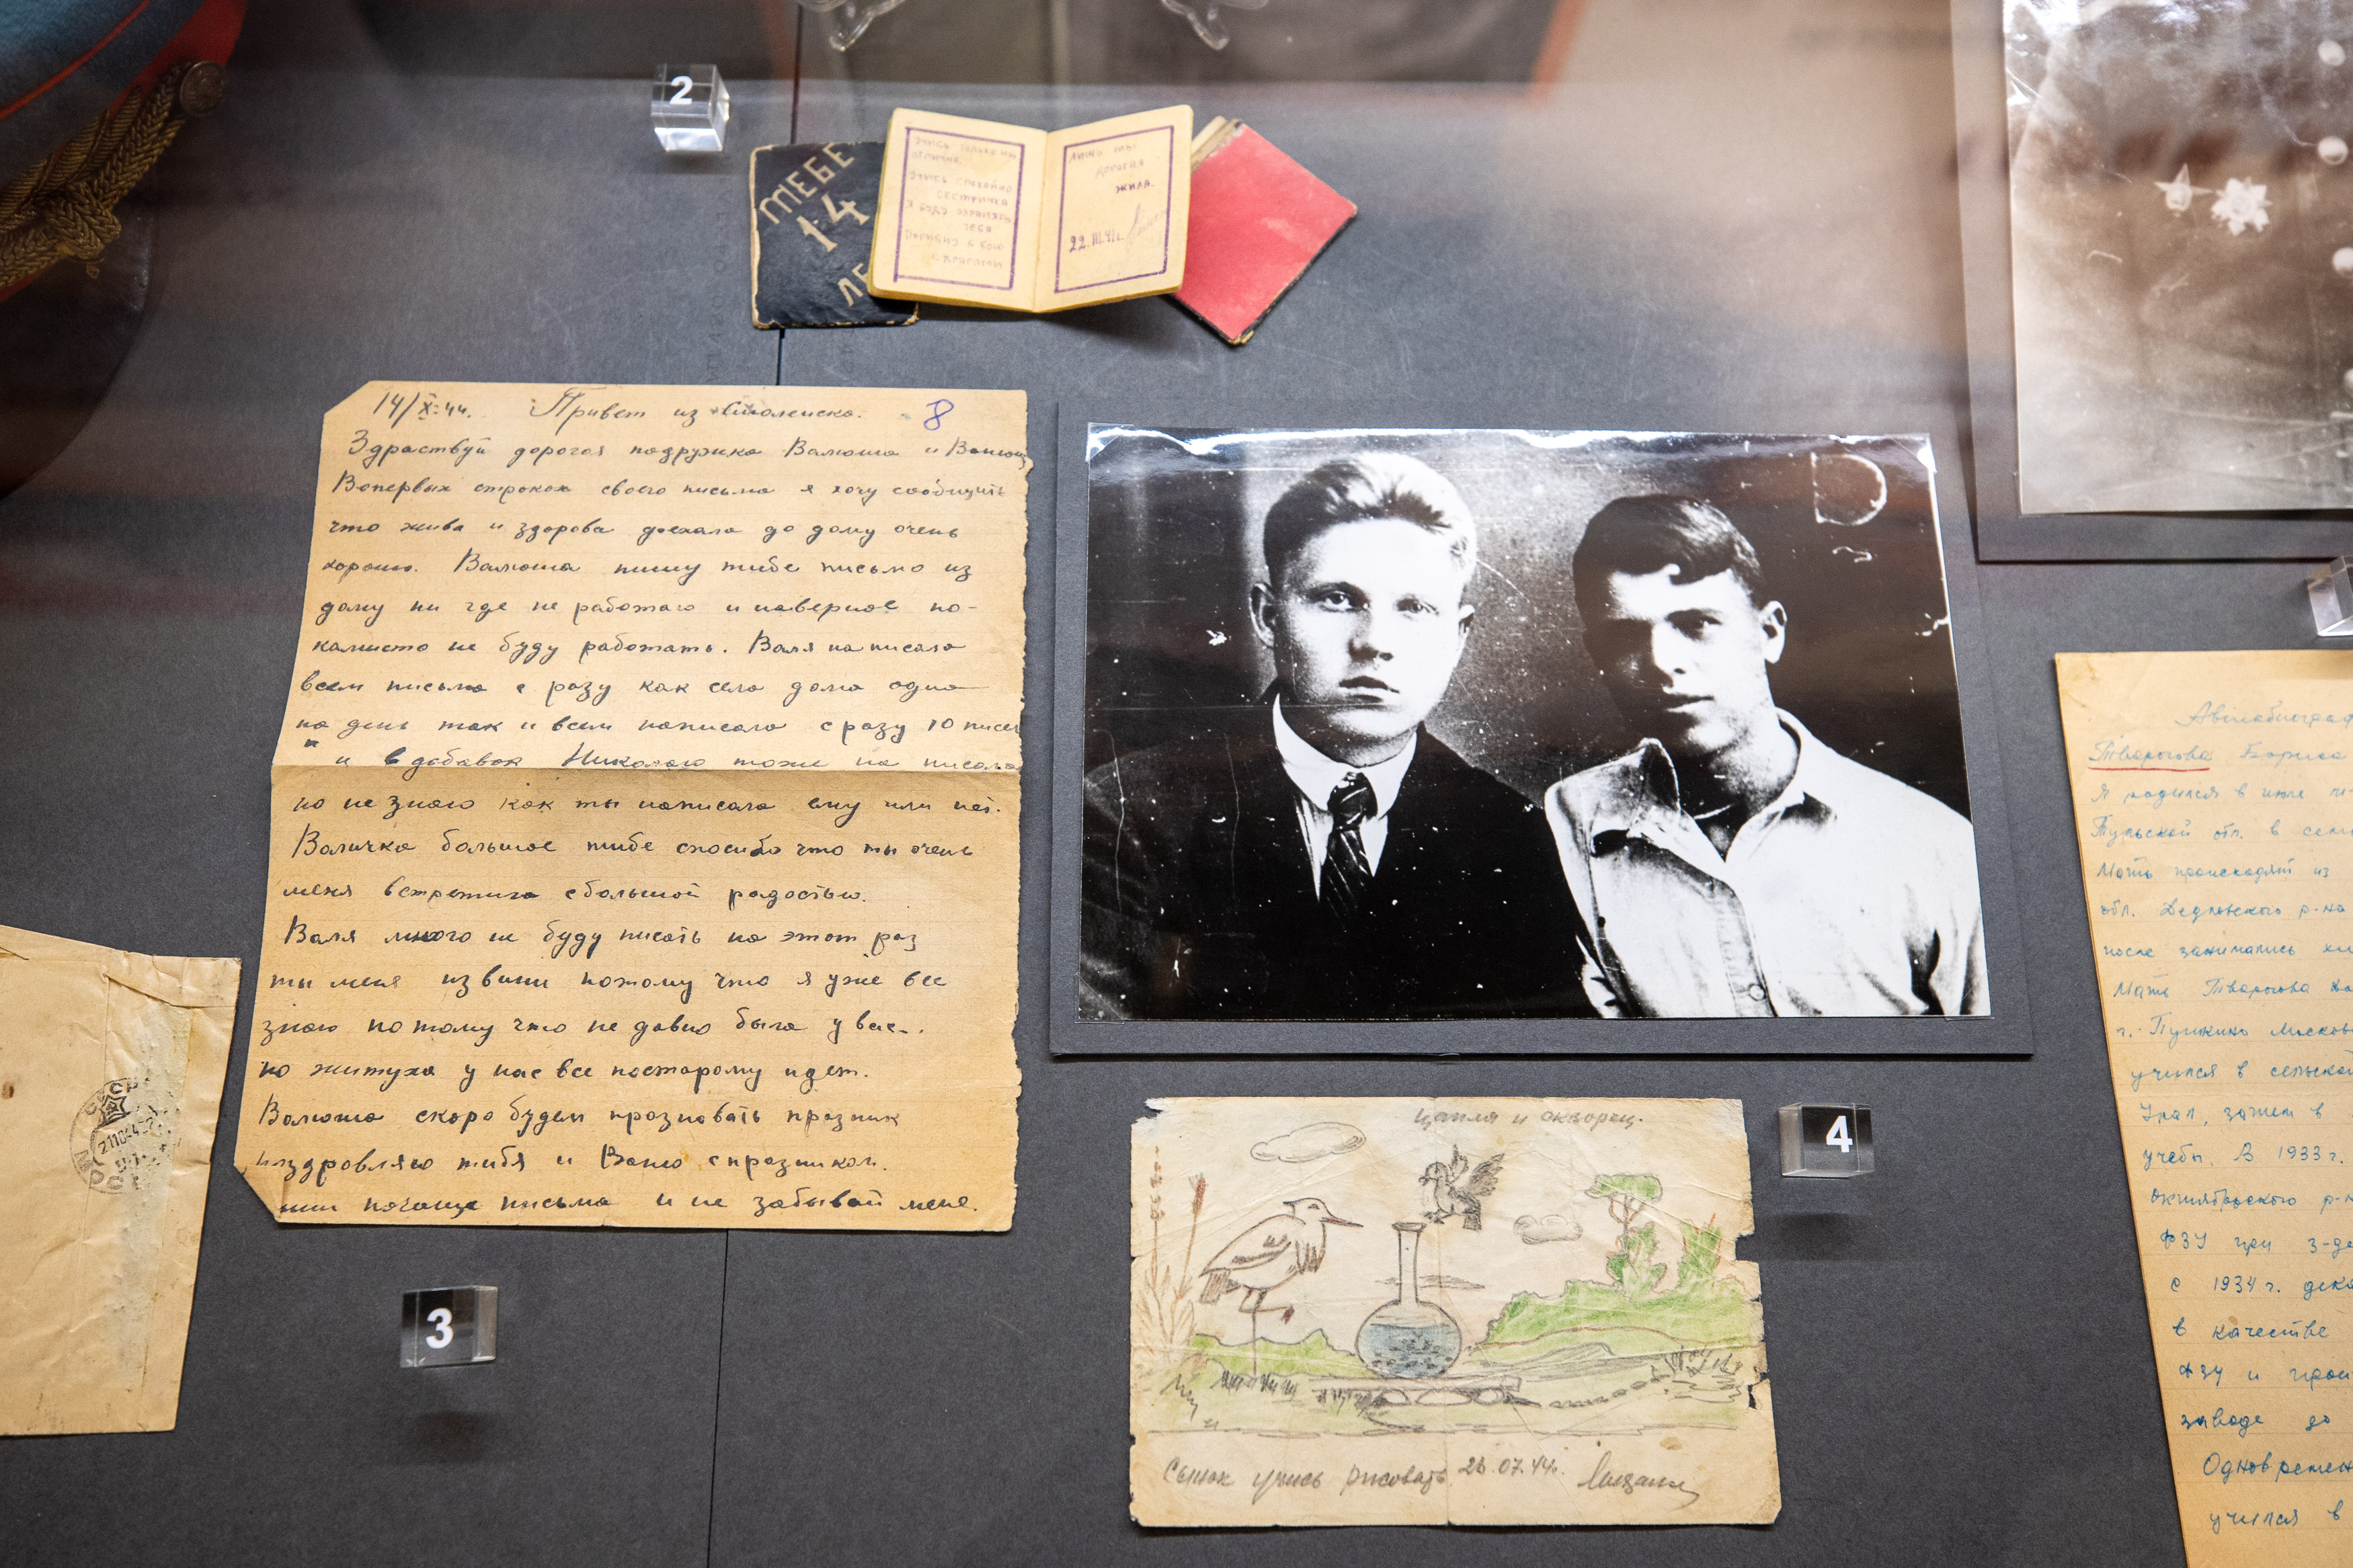 2
ТЕБЕ
14
ЛЕ
учись только на
отлично.
учись спокойно
сестричка
я буду охранять
тебя
наравне с
лишь бы
дорогая
жила.
22.III.41г.
14/X-44. Привет из Смоленска. 8
Здраствуй дорогая подружка Валюша и
Вопервых строках своего письма я хочу сообщить
что жива и здорова доехала до дому очень
хорошо. Валюша пишу тибе письмо из
дому ни где не работаю и наверное по-
камисто не буду работать. Валя написала
всем письма с разу как села дома одна
на день так и всем написала с разу 10 писем
и в добавок Николаю тоже на писала
но не знаю как ты написала ему или нет.
Валичка большое тибе спасибо что ты очень
меня встретила с большой радостью.
Валя много не буду писать на этот раз
ты меня извини потому что я уже все
знаю потому что не давно была у вас.
но житуха у нас все постарому идет.
Валюша скоро будем празновать празник
поздровляю тибя и Ваню с празником.
пиши почаще письма и не забывай меня.
3
Цапля и скворец.
4
Сынок учись рисовать 26.07.44г.
Автобиограф
Тварогова Бориса
Я родился в июле
Тульской обл. в
Мать происходит из
обл. Дедловского р-на
после занимались
Мать Тварогова
г. Пушкино Москов
учился в сельской
Урал, затем в
учебы. В 1933г.
октябрьского р-
ФЗУ при 3-
с 1934г. дека
в качестве
ФЗУ и
заводе до
Одновремен
учился в